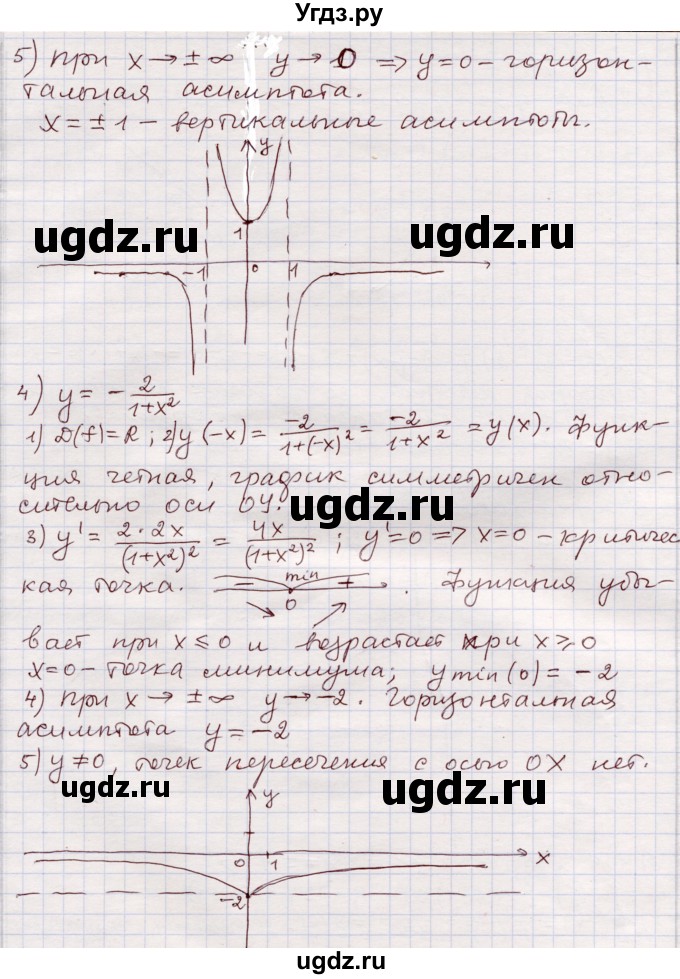 Угдз.ру
5) При x → ± ∞ y → 0 => y=0 - горизон-
тальная асимптота.
x = ± 1 - вертикальные асимптоты.
y
1
ugdz.ru ugdz.ru
-1 0 1
4) y = - 2/(1+x²)
1) D(f)=R ; 2) y(-x) = -2/(1+(-x)²) = -2/(1+x²) = y(x). Функ-
ция четная, график симметричен отно-
ugdz.ru ugdz.ru
сительно оси OY.
3) y' = 2·2x/(1+x²)² = 4x/(1+x²)² ; y'=0 => x=0 - критичес
кая точка. - min + . Функция убы-
0
вает при x ≤ 0 и возрастает при x ≥ 0
x=0 - точка минимума; y min (0) = -2
4) При x → ± ∞ y → -2. Горизонтальная
асимптота y = -2
5) y ≠ 0, точек пересечения с осью OX нет.
ugdz.ru ugdz.ru
y
0 1 x
-2
ugdz.ru ugdz.ru